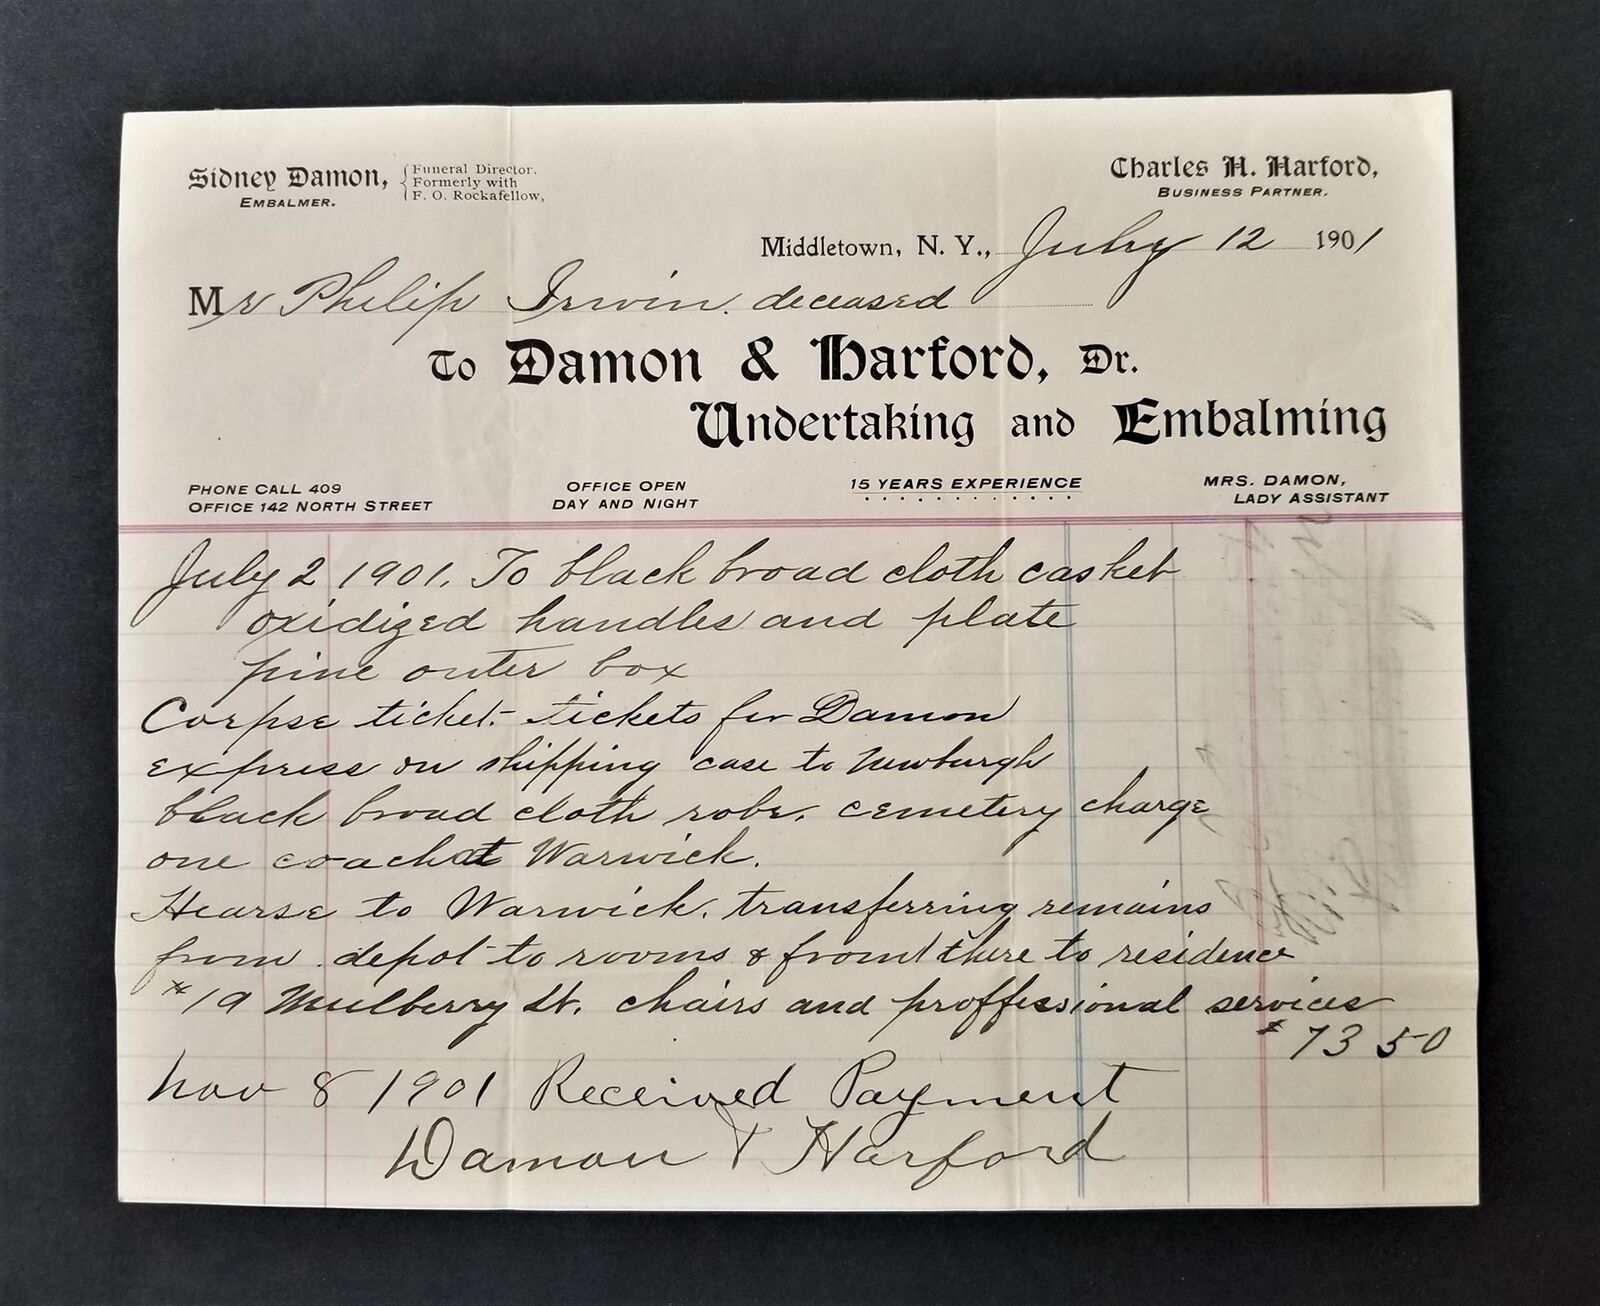 Sidney Damon,
EMBALMER.
Funeral Director.
Formerly with
F. O. Rockafellow,
Charles H. Harford,
BUSINESS PARTNER.
Middletown, N. Y., July 12 1901
Mr Philip Irwin. deceased
To Damon & Harford, Dr.
Undertaking and Embalming
PHONE CALL 409
OFFICE 142 NORTH STREET
OFFICE OPEN
DAY AND NIGHT
15 YEARS EXPERIENCE
MRS. DAMON,
LADY ASSISTANT
July 2 1901. To black broad cloth casket
oxidized handles and plate
pine outer box
Corpse ticket - tickets for Damon
express on shipping case to Newburgh
black broad cloth robe. cemetery charge
one coach at Warwick.
Hearse to Warwick. transferring remains
from depot to rooms & from there to residence
#19 Mulberry St. chairs and proffessional services
$73 50
Nov 8 1901 Received Payment
Damon & Harford